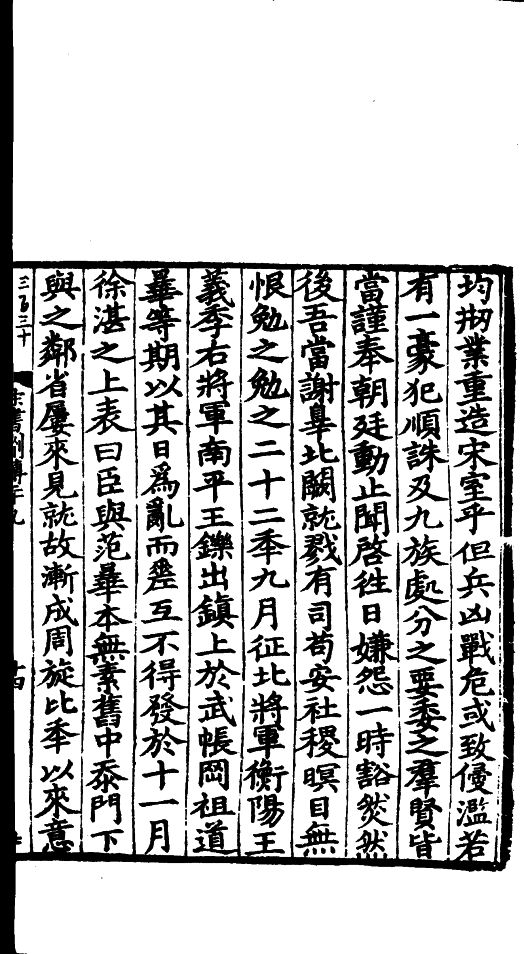 均刱業重造宋室乎但兵凶戰危或致侵濫若
有一豪犯順誅及九族處分之要委之羣賢皆
當謹奉朝廷動止聞啓徃日嫌怨一時豁然然
後吾當謝辠北闕就戮有司苟安社稷暝目無
恨勉之勉之二十二秊九月征北將軍衡陽王
義季右將軍南平王鑠出鎮上於武帳岡祖道
曅等期以其日爲亂而差互不得發於十一月
徐湛之上表曰臣與范曅本無素舊中忝門下
與之鄰省屢來見就故漸成周旋比秊以來意
三百三十
宋書列傳二十九
十四